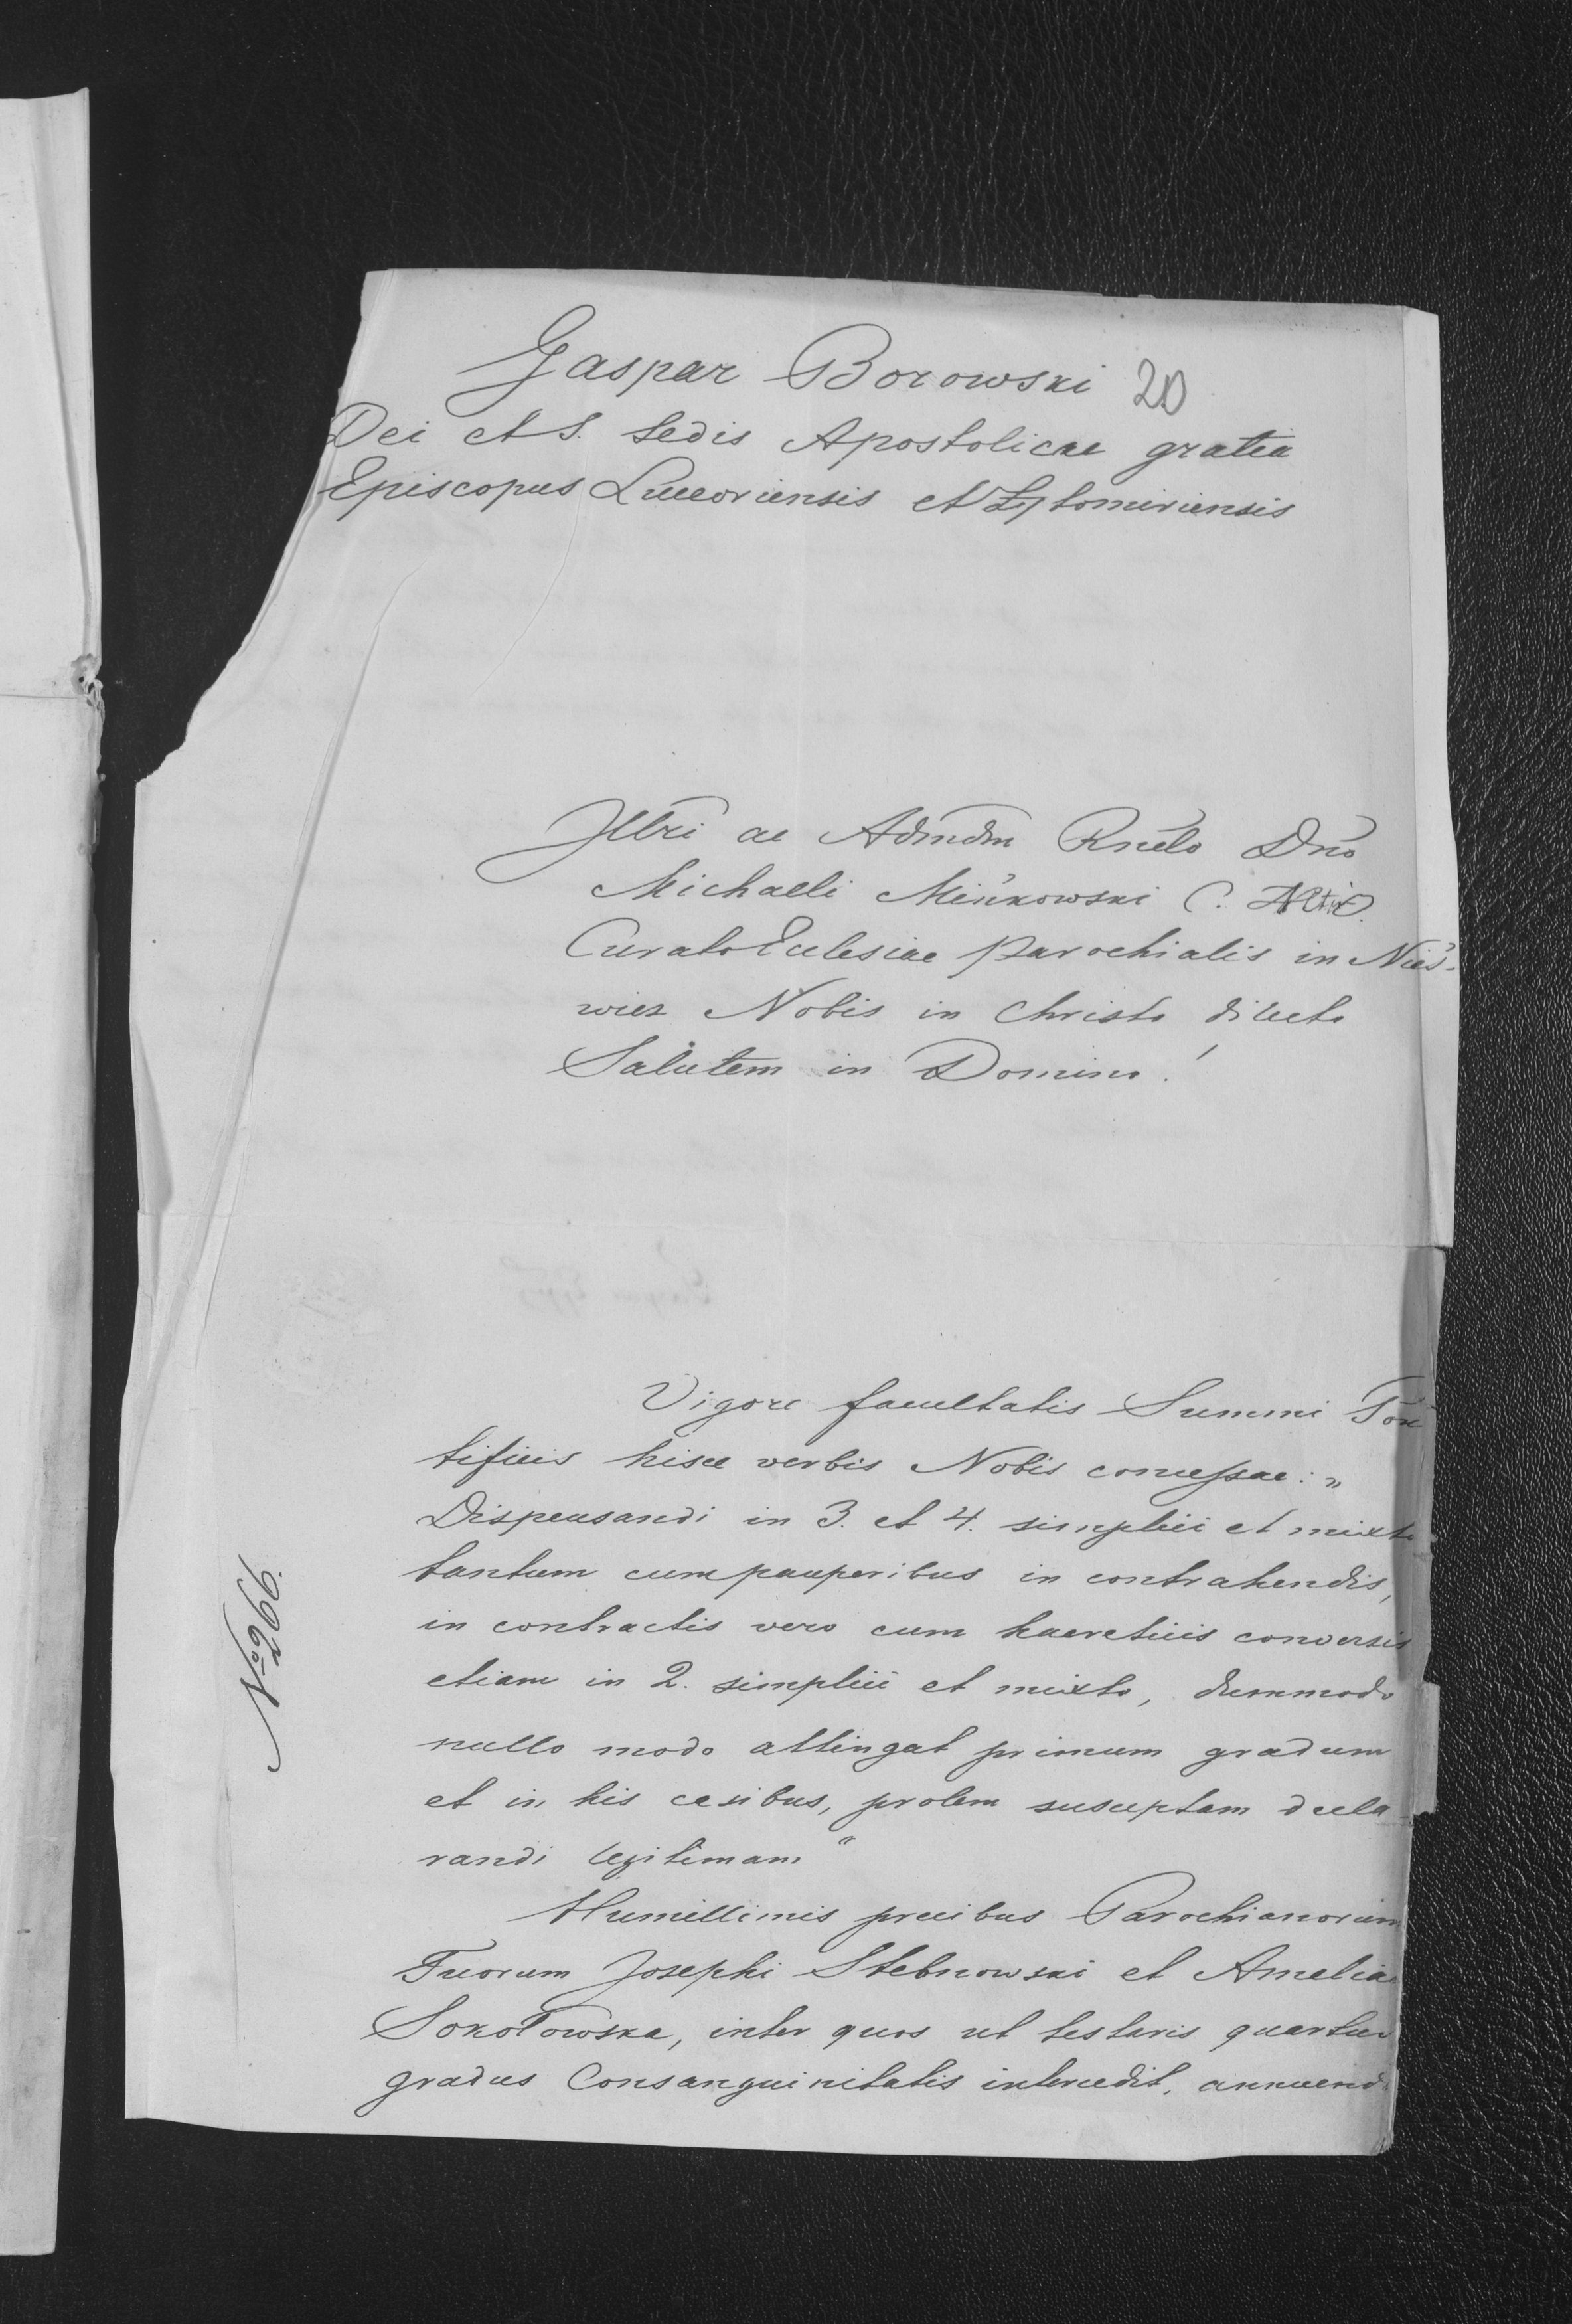 Gaspar Borowski 20
Dei et S. Sedis Apostolicae gratia
Episcopus Luceoriensis et Żytomiriensis
Illri ac Admdm Rndo Dno
Michaeli Mińkowski C.
Curato Eclesiae Parochialis in Nieś-
wicz Nobis in Christo dilecto
Salutem in Domino!
Vigore facultatis Summi Pon
tificis hisce verbis Nobis concessae: „
Dispensandi in 3. et 4. simplici et mixto
tantum cum pauperibus in contrahendis,
in contractis vero cum haereticis conversis
etiam in 2. simplici et mixto, dummodo
nullo modo attingat primum gradum
et in his casibus, prolem susceptam decla-
randi legitimam“
Humillimis precibus Parochianorum
Tuorum Josephi Stebnowski et Amelia
Sokołowska, inter quos ut testaris quartus
gradus Consanguinitatis intercedit, annuend
No 266.